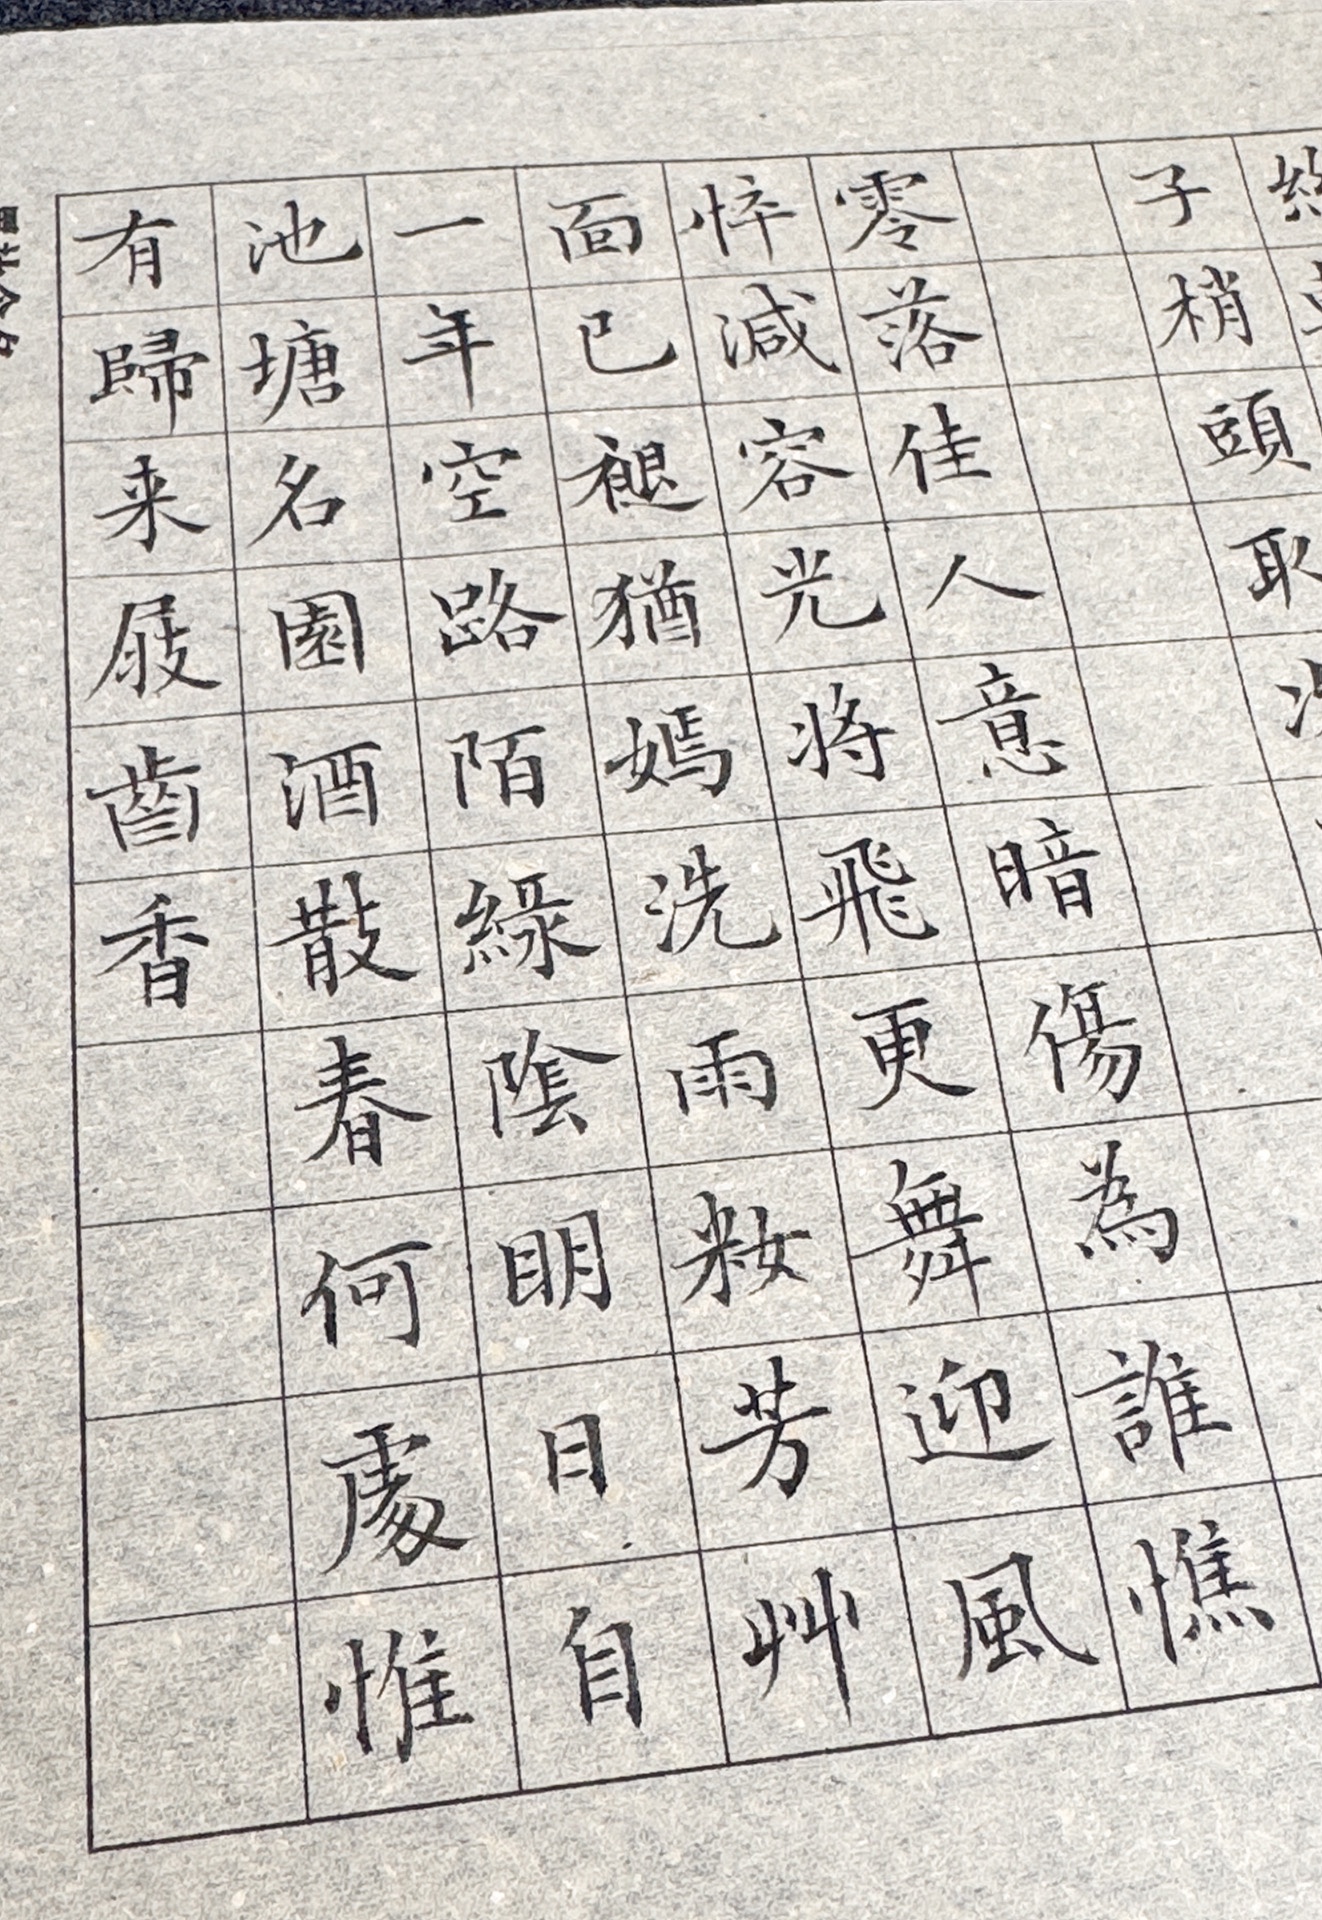 子梢頭取
零落佳人意暗傷為誰憔
悴減容光將飛更舞迎風
面已褪猶嫣洗雨粧芳艸
一年空路陌綠陰明日自
池塘名園酒散春何處惟
有歸来屐齒香